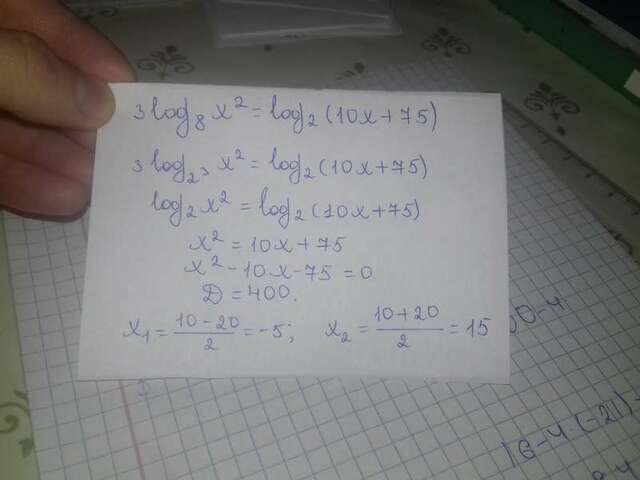 3 log₈ x² = log₂ (10x + 75)
3 log₂³ x² = log₂ (10x + 75)
log₂ x² = log₂ (10x + 75)
x² = 10x + 75
x² - 10x - 75 = 0
D = 400.
x₁ = (10 - 20)/2 = -5; x₂ = (10 + 20)/2 = 15
16 - 4 · (-21)